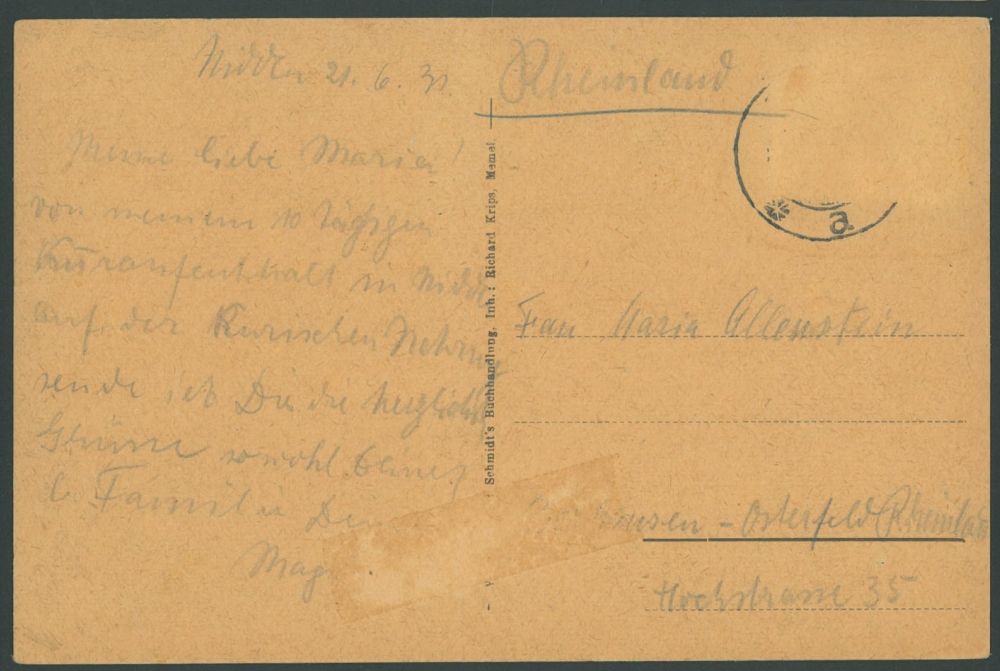 Nidden 21. 6. 31.
Meine liebe Maria!
von meinem 10 tägigen
Kuraufenthalt in Nidden
auf der Kurischen Nehrung
sende ich Dir die herzlichsten
Grüsse sowohl Deiner
l. Familie
Schmidt's Buchhandlung, Inh.: Richard Krips, Memel
Rheinland
a
Frau Maria Allenstein
- Osterfeld
Hochstrasse 35